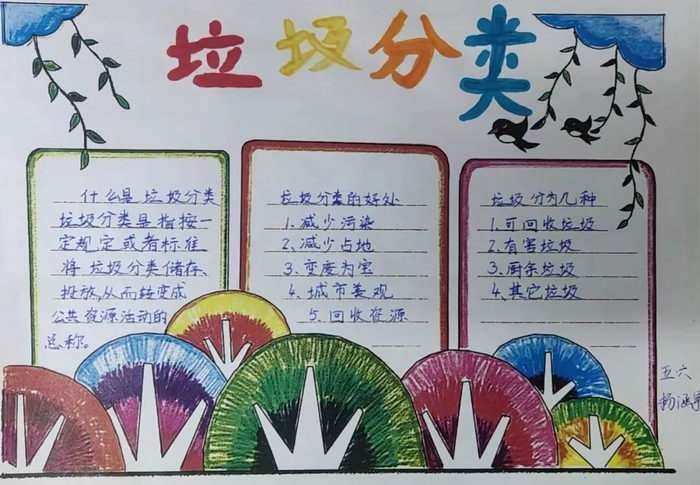 垃圾分类
什么是垃圾分类
垃圾分类是指按一
定规定或者标准
将垃圾分类储存、
投放,从而转变成
公共资源活动的
总称。
垃圾分类的好处
1.减少污染
2、减少占地
3、变废为宝
4、城市美观
5、回收资源
垃圾分为几种
1.可回收垃圾
2.有害垃圾
3.厨余垃圾
4.其它垃圾
五六
杨涵